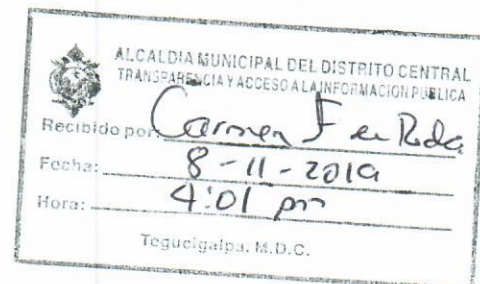 ALCALDIA MUNICIPAL DEL DISTRITO CENTRAL
TRANSPARENCIA Y ACCESO A LA INFORMACION PUBLICA
Recibido por: Carmen
Fecha: 8-11-2019
Hora: 4:01 pm
Tegucigalpa. M.D.C.